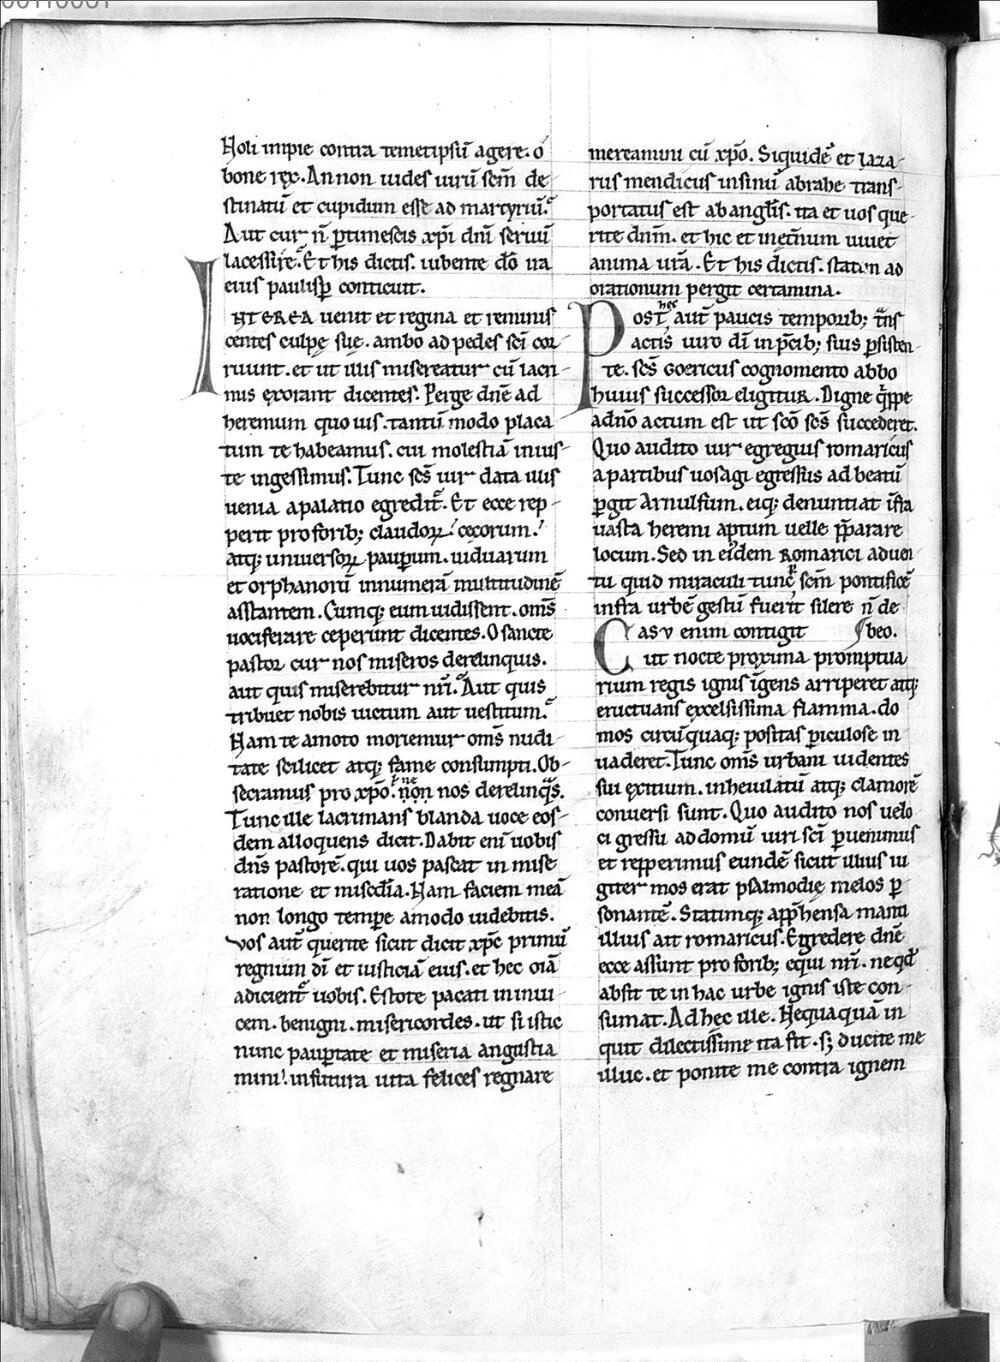 Noli impie contra temetipsū agere. o
bone rex. An non uides uirū scm̄ de
stinatū et cupidum esse ad martyriū.
Aut cur n̄ ꝑtimescis xp̄i dn̄i seruū
lacessire. Et his dictis. iubente dō ira
eius paulisꝑ conticuit.
INTEREA uenit et regina et reminis
centes culpę suę. ambo ad pedes sc̄i cor
ruunt. et ut illis misereatur cū lacri
mis exorant dicentes. Perge dn̄e ad
heremum quo uis. tantū modo placa
tum te habeamus. cui molestiā inius
te ingessimus. Tunc sc̄s uir data illis
uenia a palatio egredit᷑. Et ecce rep
perit pro forib; claudoꝝ cęcorum.
atq; universoꝝ pauꝑum. uiduarum
et orphanorū innumerā multitudinē
asstantem. Cumq; eum uidissent. om̄s
uociferare ceperunt dicentes. O sancte
pastor cur nos miseros derelinquis.
aut quis miserebitur nr̄i. Aut quis
tribuet nobis uictum aut uestitum.
Nam te amoto moriemur om̄s nudi
tate scilicet atq; fame consumpti. Ob
secramus pro xp̄o. ne non nos derelinq̄s.
Tunc ille lacrimans blanda uoce eos
dem alloquens dicit. Dabit eni uobis
dn̄s pastorē. qui uos pascat in mise
ratione et misc̄dia. Nam faciem meā
non longo tempe amodo uidebitis.
Vos aut̄ querite sicut dicit xp̄c primū
regnum dī et iusticiā eius. et hec oīa
adicient᷑ uobis. Estote pacati in inui
cem. benigni. misericordes. ut si istic
nunc pauꝑtate et miseria angustia
mini. in futura uita felices regnare
mereamini cū xp̄o. Siquidē et laza
rus mendicus in sinū abrahe trans
portatus est ab anglīs. ita et uos que
rite dn̄m. et hic et inet̄num uiuet
anima ur̄a. Et his dictis. statim ad
orationum pergit certamina.
Post hec aut̄ paucis temporib; t̄ns
actis uiro dī in p̄cib; suis ꝑsisten
te. sc̄s Goericus cognomento abbo
huius successor eligitur. Digne q̄ppe
a dn̄o actum est ut sc̄o sc̄s succederet.
Quo audito uir egregius romaricus
a partibus uosagi egressus ad beatū
ꝑgit Arnulfum. eiq; denuntiat inf̄a
uasta heremi aptum uelle p̄parare
locum. Sed in eidem Romarici aduen
tu quid miraculi tunc ꝑ scm̄ pontificē
infra urbē gestū fuerit silere n̄ de
beo.
Casu enim contigit
ut nocte proxima promptua
rium regis ignis īgens arriperet atq;
eructuans excelsissima flamma. do
mos circūquaq; positas ꝑiculose in
uaderet. Tunc om̄s urbani uidentes
sui exitium. in heiulatū atq; clamorē
conuersi sunt. Quo audito nos uelo
ci gressu ad domū uiri sc̄i ꝑuenimus
et repperimus eundē sicut illius iu
giter mos erat psalmodię melos ꝑ
sonantē. Statimq; app̄hensa manu
illius ait romaricus. Egredere dn̄e
ecce assunt pro forib; equi nr̄i. ne qd̄
absit te in hac urbe ignis iste con
sumat. Ad hec ille. Nequaquā in
quit dilectissime ita fit. s; ducite me
illuc. et ponite me contra ignem